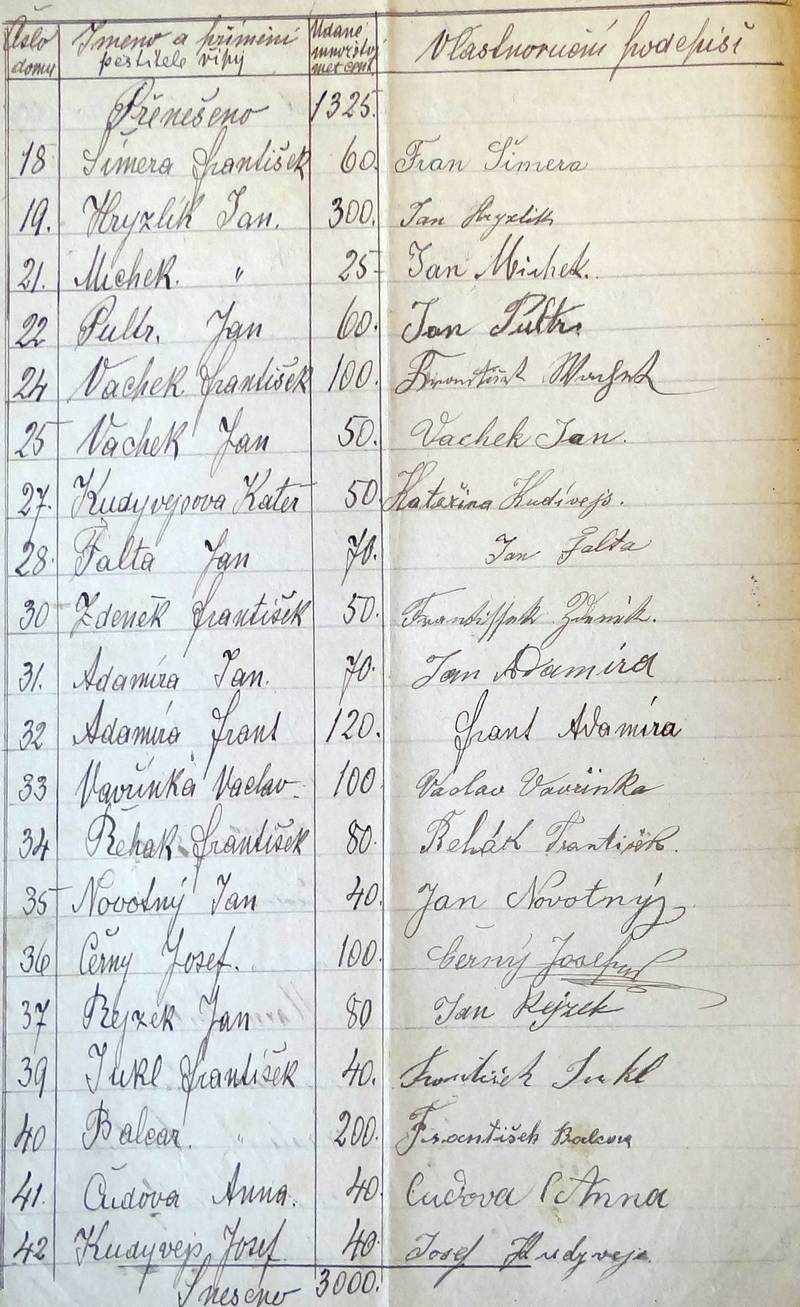 Číslo domu Jmeno a přímění pěstitele řípy Udané množství met cent Vlastnoruční podepisi
Přenešeno 1325.
18 Šiměra František 60. Fran Šimera
19. Hryzlík Jan. 300. Jan Hryzlik
21. Michek. " 25 Jan Michek.
22 Pultr. Jan 60. Jan Pultr.
24 Vachek František 100. František Wachek
25 Vachek Jan 50. Vachek Jan.
27. Kudyvejsova Kateř 50 Kateřina Kudívejs.
28. Falta Jan 70. Jan Falta
30 Zdeněk František 50. Frantissek Zdeněk.
31. Adamíra Jan. 70. Jan Adamíra
32 Adamíra Frant 120. Frant Adamíra
33 Vavřinka Vaclav. 100. Vaclav Vavřinka
34 Řehak František 80. Řehák František.
35 Novotný Jan 40. Jan Novotný
36 Černy Josef. 100. Černý Josef
37 Ryzek Jan 80 Jan Rejzek
39 Jukl František 40. František Jukl
40 Balcar. " 200. František Balcar
41. Čudova Anna. 40. Čudova Anna
42 Kudyvejs Josef 40. Josef Kudyvejs.
Sneseno 3000.